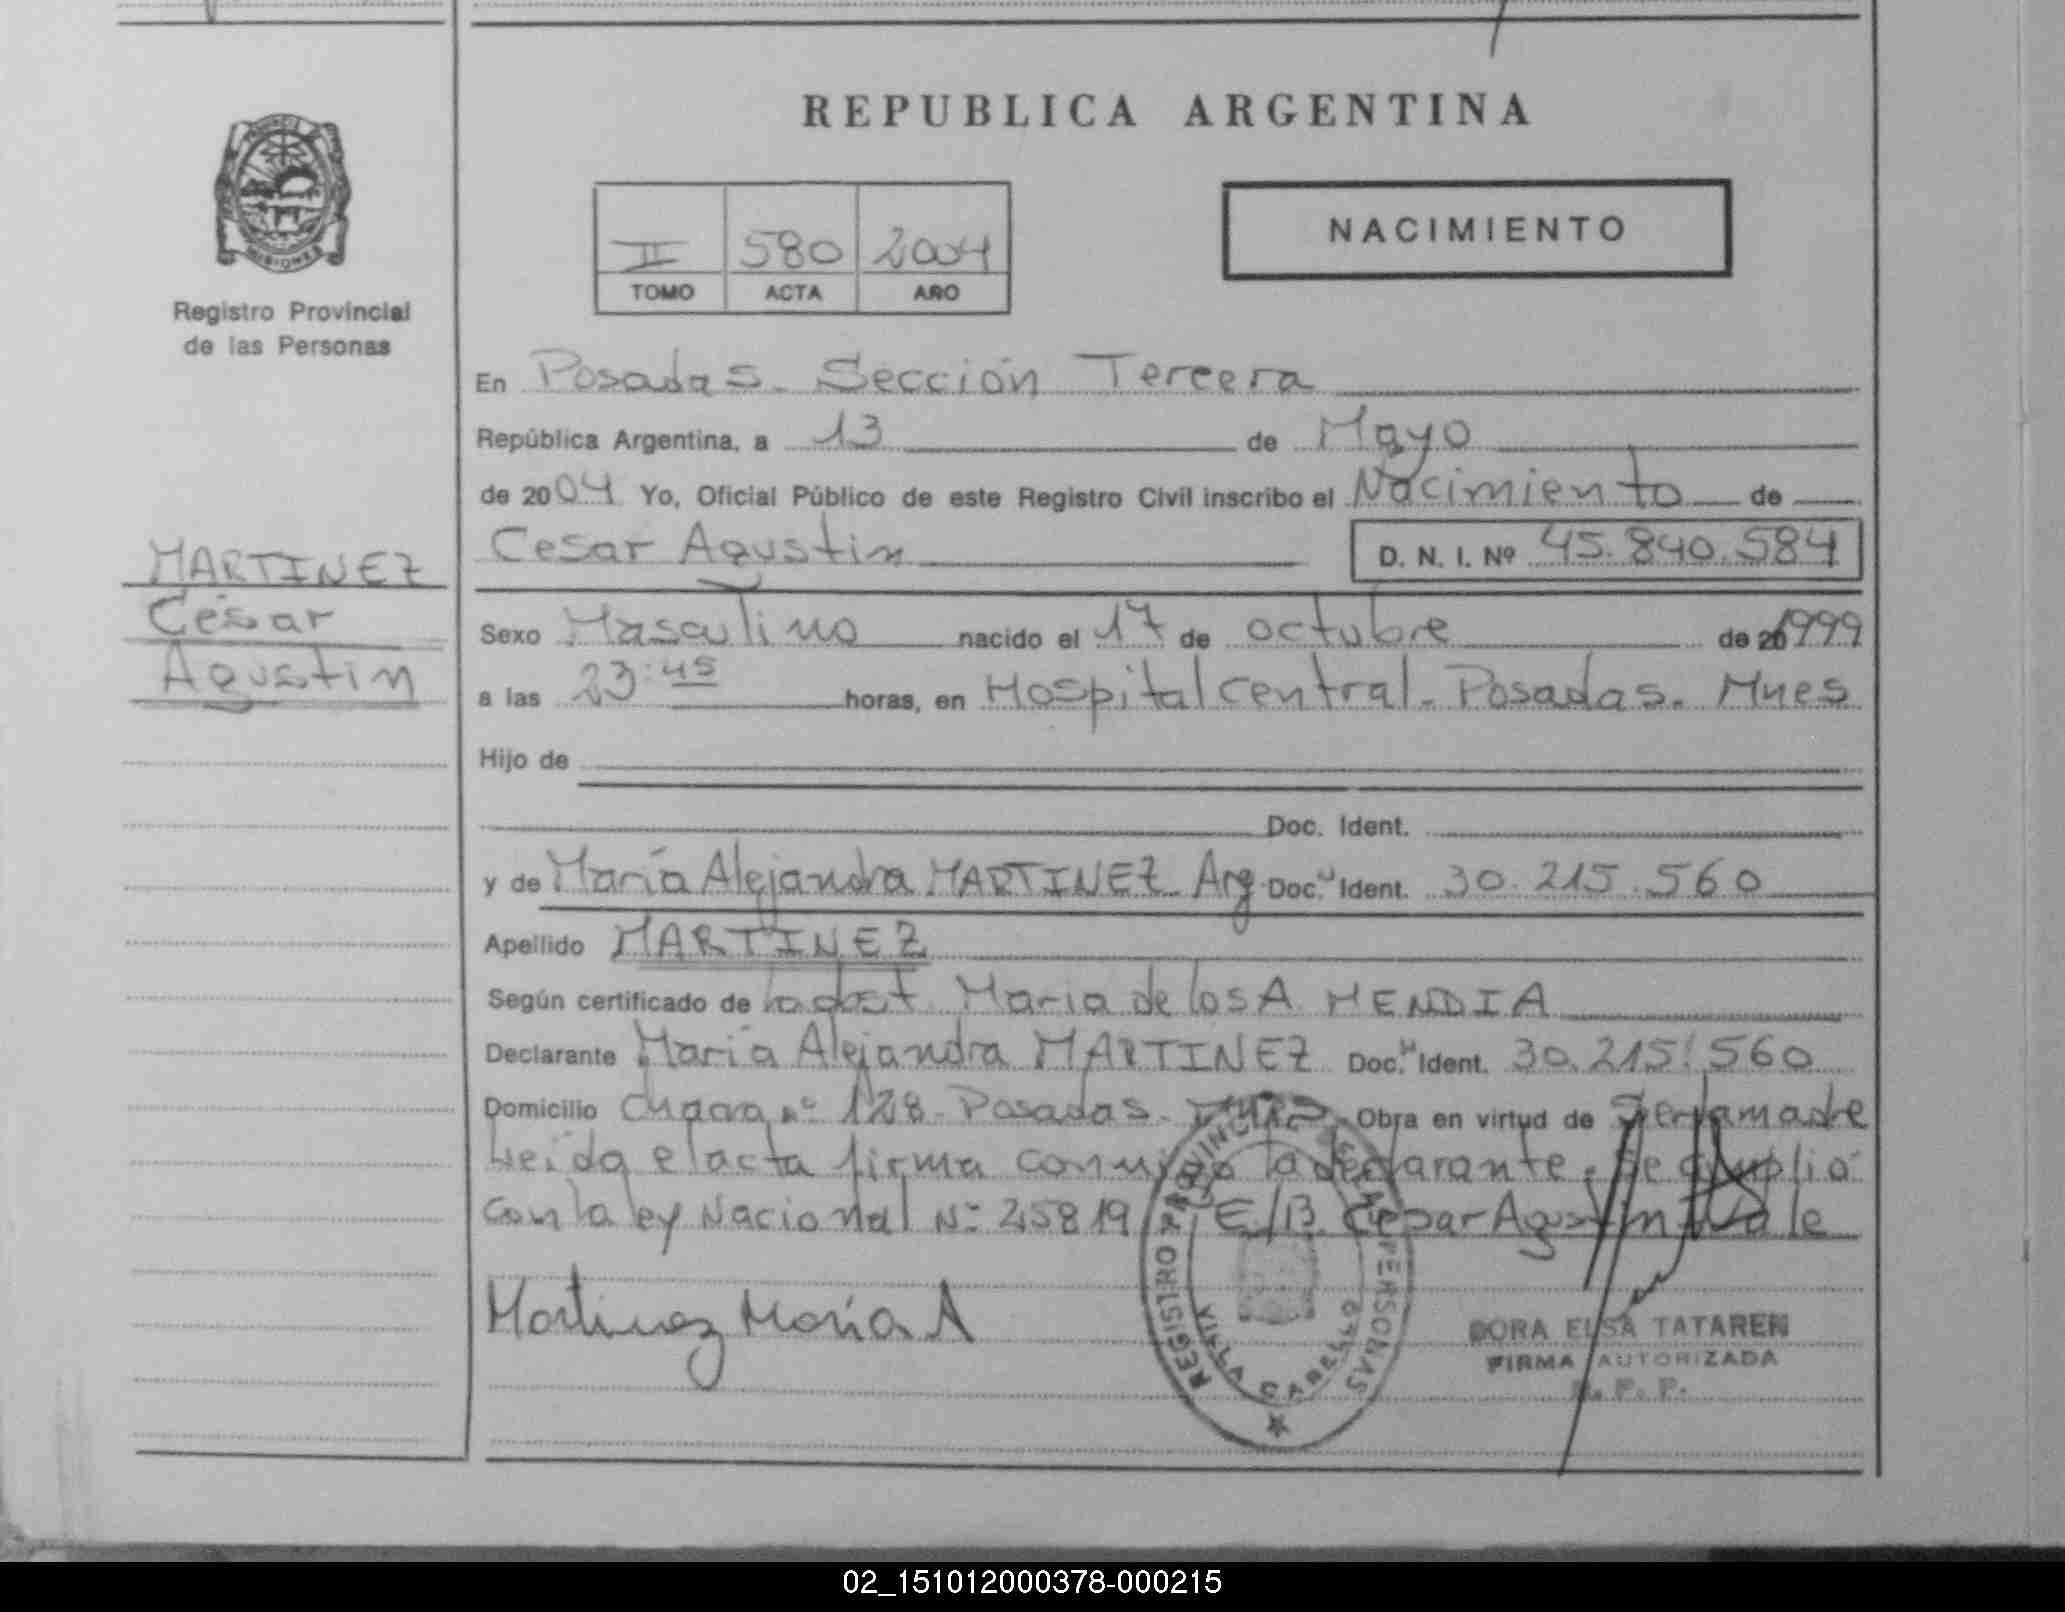 REPUBLICA ARGENTINA
PROVINCIA DE
MISIONES
Registro Provincial
de las Personas
II 580 2004
TOMO ACTA AÑO
NACIMIENTO
En Posadas. Sección Tercera
República Argentina, a 13 de Mayo
de 2004 Yo, Oficial Público de este Registro Civil inscribo el Nacimiento de
Cesar Agustin D. N. I. Nº 45.840.584
MARTINEZ
César
Agustin
Sexo Masculino nacido el 17 de octubre de 201999
a las 23:45 horas, en Hospital Central. Posadas. Mnes
Hijo de
Doc. Ident.
y de María Alejandra MARTINEZ Arg Doc. Ident. 30.215.560
Apellido MARTINEZ
Según certificado de la obst. Maria de los A. MENDIA
Declarante María Alejandra MARTINEZ Doc. Ident. 30.215.560
Domicilio Chacra nº 128. Posadas. Mnes Obra en virtud de Ser la madre
Leida el acta firma conmigo la declarante. Se cumplió
con la ley Nacional Nº 25819 E/B. Cesar Agustin Vale
Martinez María A
REGISTRO PROVINCIAL DE LAS PERSONAS
VILLA CABELLO
DORA ELSA TATAREN
FIRMA AUTORIZADA
R. P. P.
02_151012000378-000215